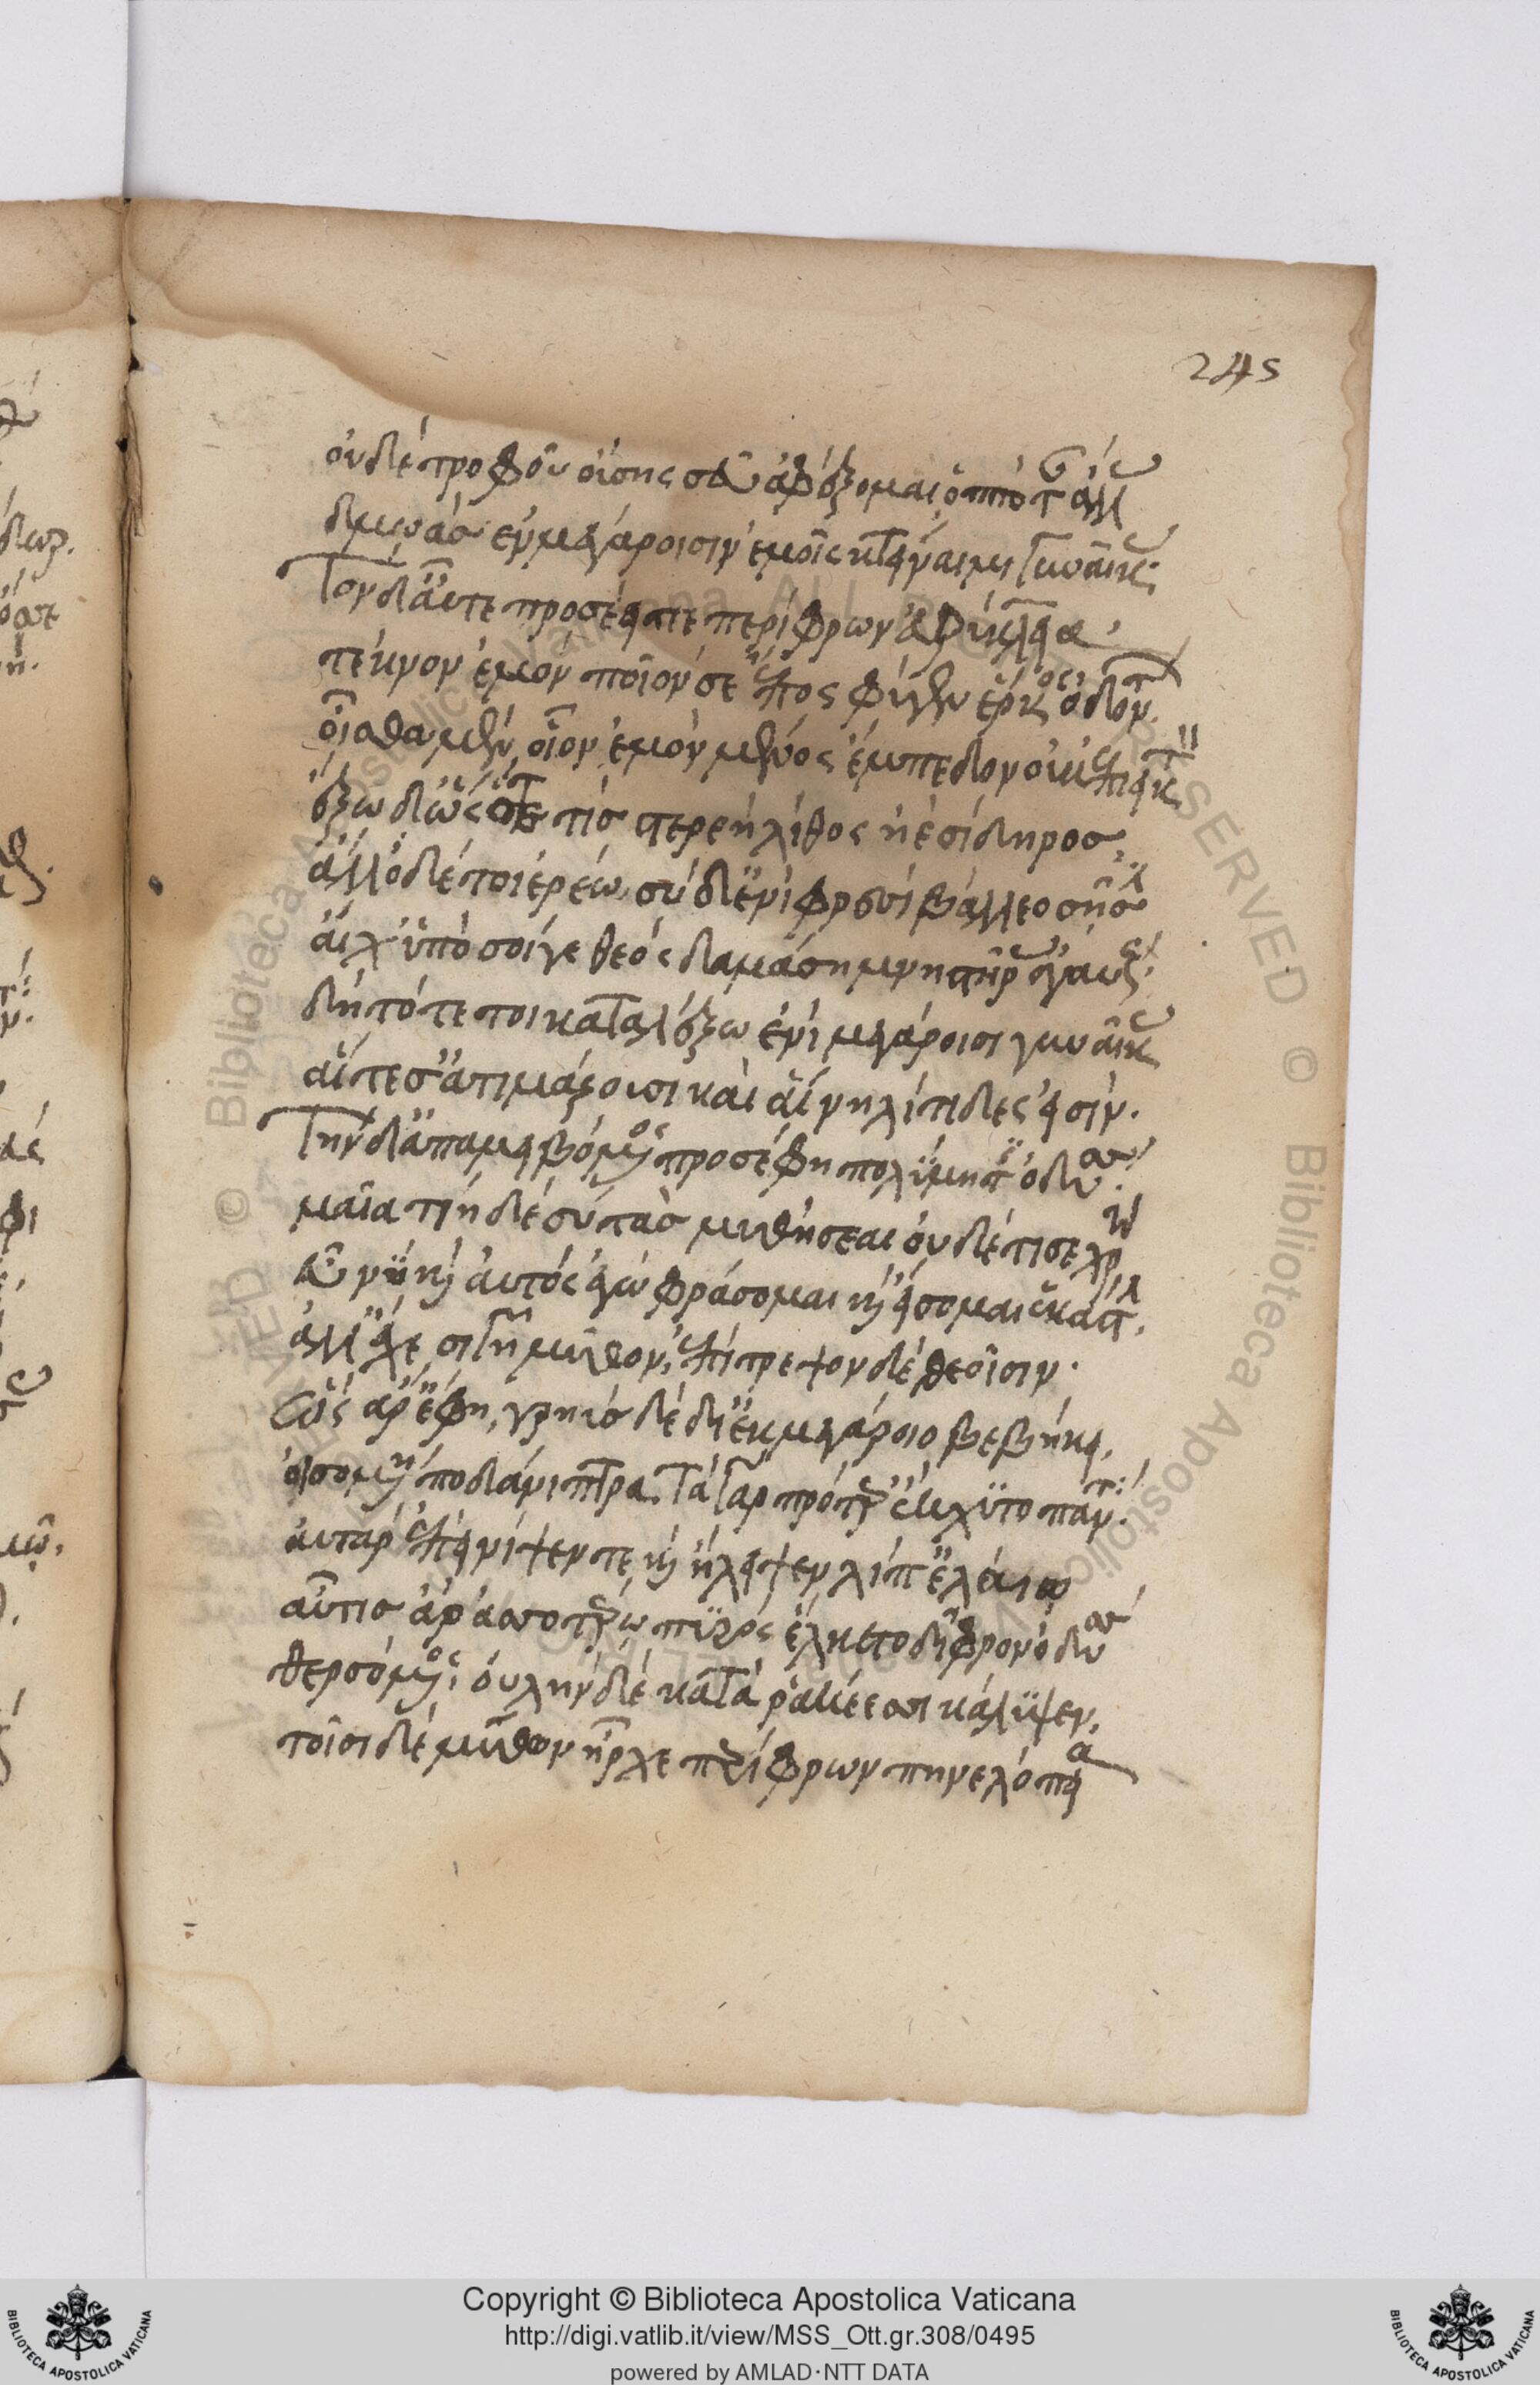 245
οὐδὲ τροφοῦ οὔσης σεῦ ἀφέξομαι ὁππότ' ἂν ἄλλας
δμωὰς ἐν μεγάροισιν ἐμοῖς κτείναιμι γυναῖκας.
Τὸν δ' αὖτε προσέειπε περίφρων Εὐρύκλεια·
τέκνον ἐμὸν ποῖόν σε ἔπος φύγεν ἕρκος ὀδόντων.
οἶσθα μὲν οἷον ἐμὸν μένος ἔμπεδον οὐκ ἐπιεικτόν
ἕξω δ' ὡς ὅτε τις στερεὴ λίθος ἠὲ σίδηρος,
ἄλλο δέ τοι ἐρέω, σὺ δ' ἐνὶ φρεσὶ βάλλεο σῇσιν
αἴ χ' ὑπὸ σοί γε θεὸς δαμάσῃ μνηστῆρας ἀγαυούς.
δὴ τότε τοι καταλέξω ἐνὶ μεγάροισι γυναῖκας
αἵ τέ σ' ἀτιμάζουσι καὶ αἳ νηλίτιδές εἰσιν.
Τὴν δ' ἀπαμειβόμενος προσέφη πολύμητις Ὀδυσσεύς.
μαῖα τίη δὲ σὺ τὰς μυθήσεαι οὐδέ τί σε χρή
εὖ νύ καὶ αὐτὸς ἐγὼ φράσομαι καὶ εἴσομαι ἑκάστην.
ἀλλ' ἔχε σιγῇ μῦθον, ἐπίτρεψον δὲ θεοῖσιν.
Ὣς ἄρ' ἔφη, γρηὺς δὲ δι' ἐκ μεγάροιο βεβήκει,
οἰσομένη ποδάνιπτρα. τὰ γὰρ πρότερ' ἔκχυτο πάντα.
αὐτὰρ ἐπεὶ νίψεν τε καὶ ἤλειψεν λίπ' ἐλαίῳ
αὖτις ἄρ' ἀσσοτέρω πυρὸς ἕλκετο δίφρον Ὀδυσσεύς
θερσόμενος, οὐλὴν δὲ κατὰ ῥακέεσσι κάλυψεν,
τοῖσι δὲ μύθων ἦρχε περίφρων Πηνελόπεια
Copyright © Biblioteca Apostolica Vaticana
http://digi.vatlib.it/view/MSS_Ott.gr.308/0495
powered by AMLAD·NTT DATA